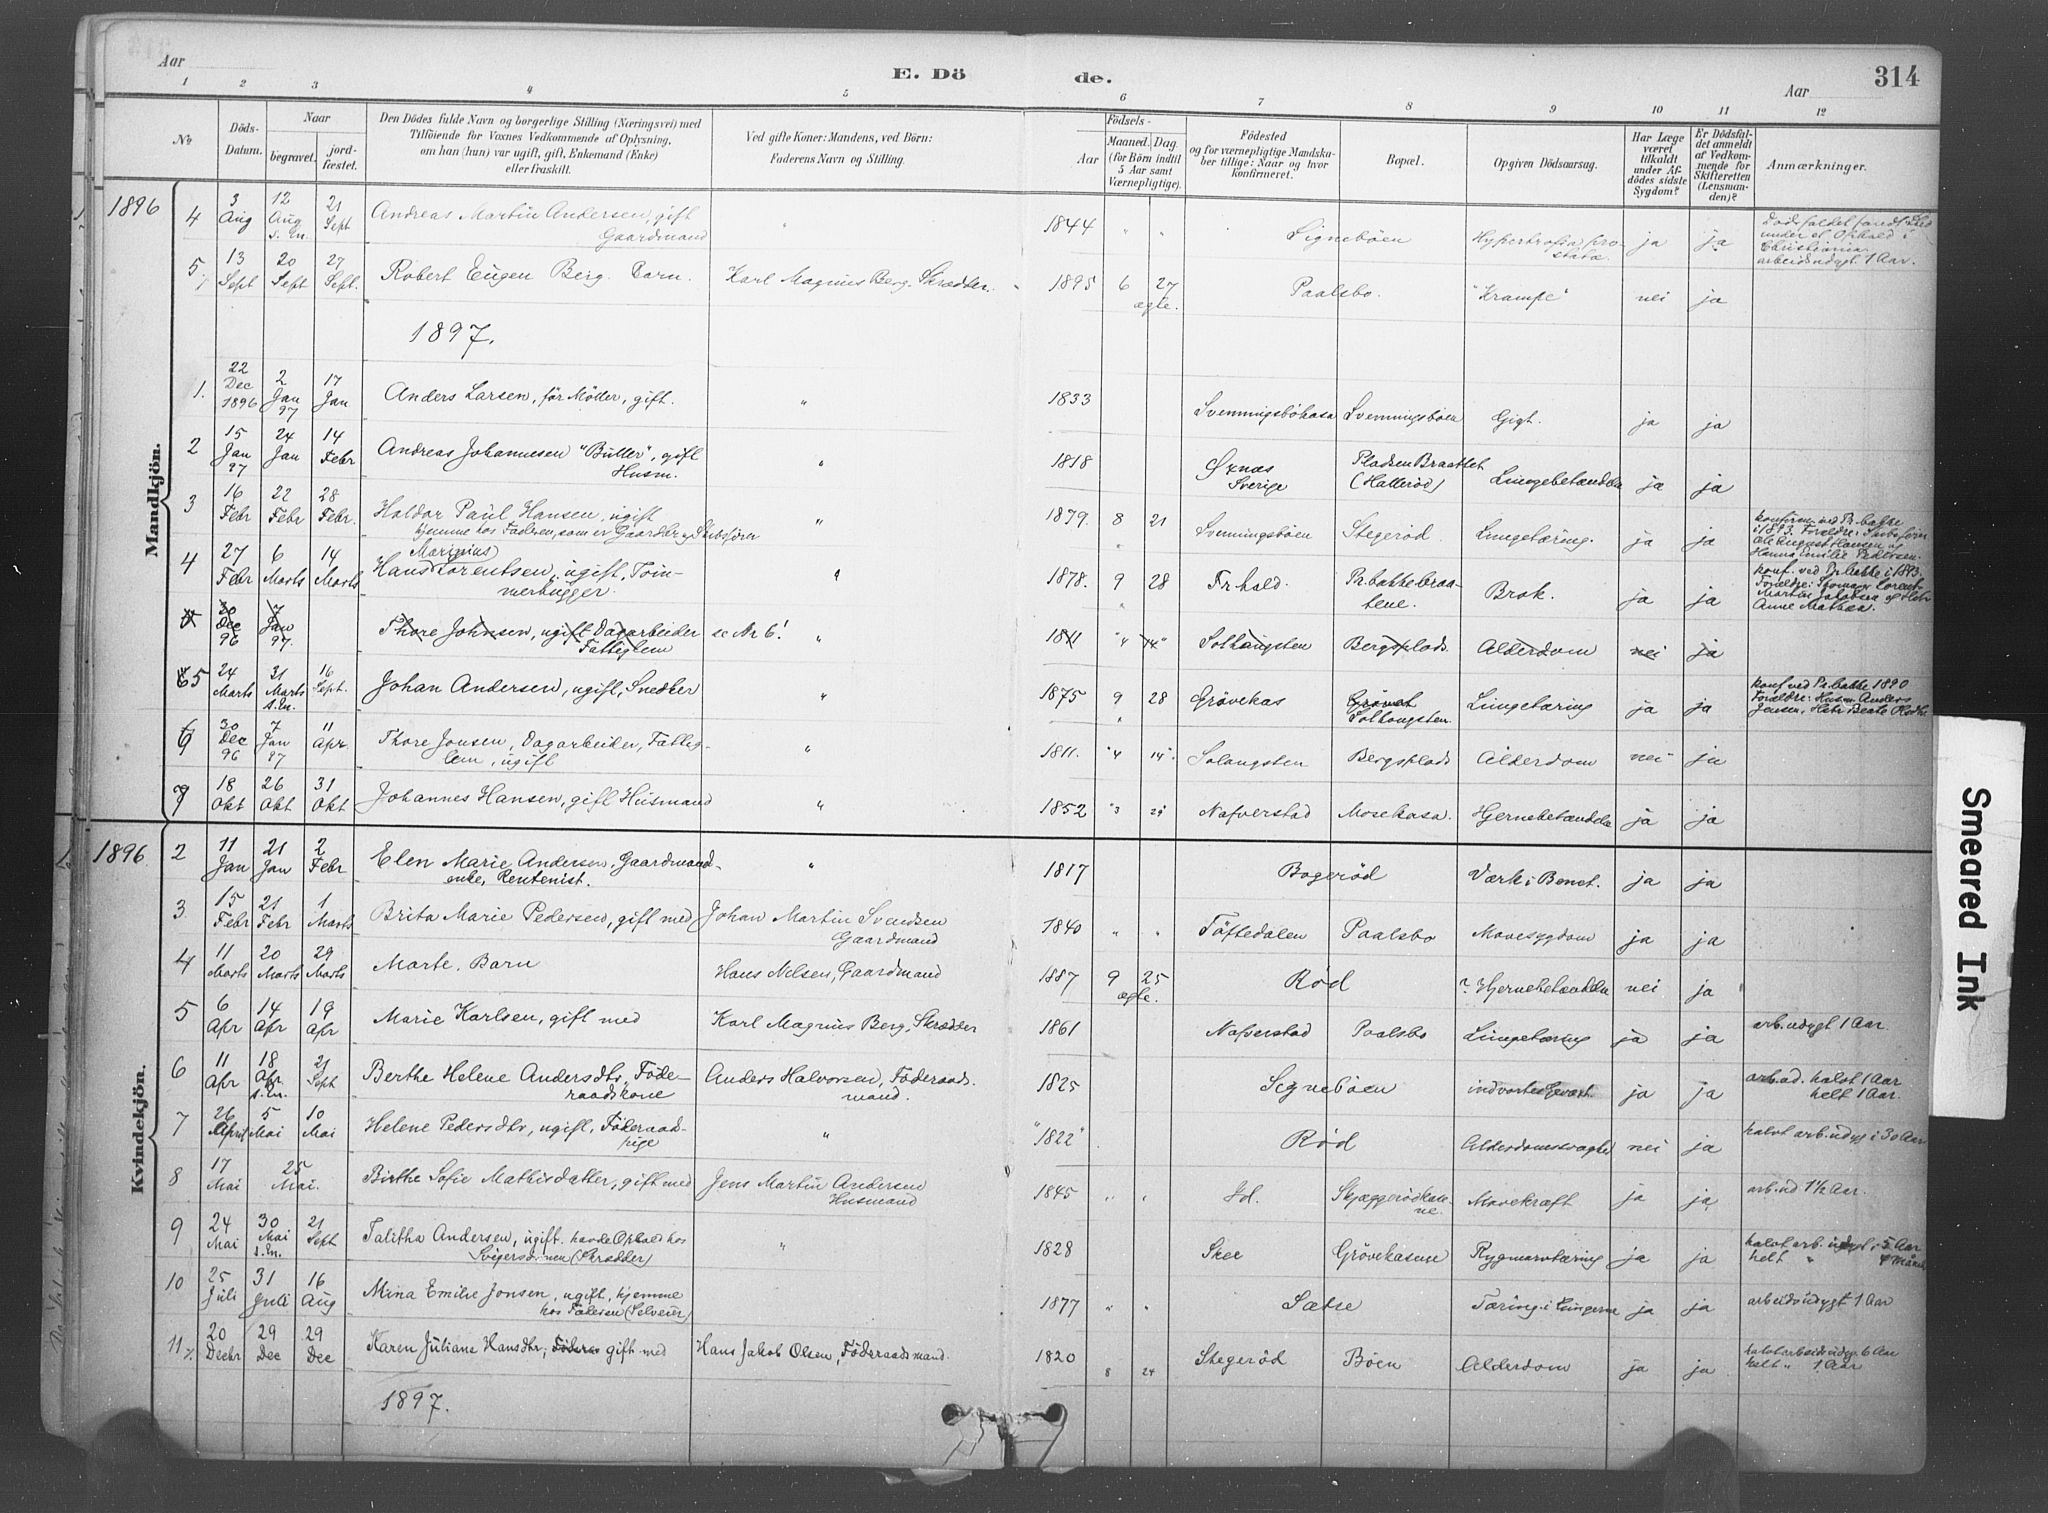 Aar
E. Dö de.
Aar
314
1 2 3 4 5 6 7 8 9 10 11 12
No
Döds-Datum.
Naar
begravet.
jord-fæstet.
Den Dödes fulde Navn og borgerlige Stilling (Næringsvei) med
Tilföiende for Voxnes Vedkommende af Oplysning,
om han (hun) var ugift, gift, Enkemand (Enke)
eller fraskilt.
Ved gifte Koner: Mandens, ved Börn:
Faderens Navn og Stilling.
Födsels-
Aar
Maaned. Dag.
(for Börn indtil
5 Aar samt
Værnepligtige).
Födested
og for værnepligtige Mandska-
ber tillige: Naar og hvor
konfirmeret.
Bopæl.
Opgiven Dödsaarsag.
Har Læge
været
tilkaldt
under Af-
dödes sidste
Sygdom?
Er Dödsfal-
det anmeldt
af Vedkom-
mende for
Skifteretten
(Lensman-
den)?
Anmærkninger.
Mandkjön.
1896 4 3 Aug 12 Aug s. En. 21 Sept Andreas Martin Andersen, gift Gaardmand " 1844 " " Signebøen Hypertrofia prostatæ ja ja
under et Ophold i
Christiania.
arbeidsudygt. 1 Aar.
5 13 Sept 20 Sept 27 Sept. Robert Eugen Berg. Barn. Karl Magnus Berg. Skrædder. 1895 6 27 ægte. Paalsbo. "Krampe" nei ja
1897.
1. 22 Dec 1896 2 Jan 97 17 Jan Anders Larsen, før Møller, gift. " 1833 Svenningsbøkasa Svenningsbøen Gigt. ja ja
2 15 Jan 97 24 Jan 14 Febr Andreas Johannesen "Butler", gift Husm. " 1818 Sverige Pladsen Braattet (Hallerød) Lungebetændelse ja ja
3 16 Febr 22 Febr 28 Febr. Haldor Paul Hansen, ugift
hjemme hos Faderen, som er Gaardbr. og Skibsfører " 1879. 8 21 Svenningsbøen Stegerød. Lungetæring. ja ja
konfirm. ved Pr.bakke
i 1893. Forældre: Skibsfører
Ole August Hansen og
Hanna Emilie Pedersen.
4 27 Febr 6 Marts 14 Marts Hans Marinius Lorentsen, ugift, Tømmerhugger. " 1878. 9 28 Fr.hald. Pr.bakkebraatene. Brok. ja ja
konf. ved Pr.bakke i 1893.
30 Dec 96 7 Jan 97. Thore Johnsen, ugift Dagarbeider Fattiglem se Nr 6! " 1811 " 4 14 " Solhaugsten Bergsplads. Alderdom nei ja
5 24 Marts 31 Marts s. En. 16 Sept. Johan Andersen, ugift, Snedker " 1875 9 28 Grøvekas Solhaugsten. Lungetæring ja ja
konf. ved Pr.bakke 1890
Forældre: Husm Anders
Jensen,
6 30 Dec 96 7 Jan 97 11 Apr. Thore Jonsen, Dagarbeider, Fattiglem, ugift " 1811. " 4 14 " Solaugsten Bergsplads Alderdom nei ja
7 18 Okt 26 Okt 31 Okt Johannes Hansen, gift Husmand " 1852 " 3 29 Nafverstad Mosekasa. Hjernebetændelse ja ja
Kvindekjön.
1896 2 11 Jan 21 Jan 2 Febr Elen Marie Andersen, Gaardmandenke, Rentenist. " 1817 Bogerød Værk i Benet. ja ja
3 15 Febr 21 Febr 1 Marts Brita Marie Pedersen, gift med Johan Martin Svendsen Gaardmand 1840 " " Töftedalen Paalsbo Mavesygdom ja ja
4 11 Marts 20 Marts 29 Marts Marte. Barn Hans Nelsen, Gaardmand 1887 9 25 ægte. Rød ? Hjernebetændelse nei ja
5 6 Apr 14 Apr 19 Apr Marie Karlsen, gift med Karl Magnus Berg, Skrædder 1861 Nafverstad Paalsbo Lungetæring ja ja arb.udygt 1 Aar.
6 11 Apr 18 Apr s. En. 21 Sept Berthe Helene Andersdtr, Föderaadskone Anders Halvorsen, Föderaadsmand. 1825 Segnebøen indvortes Gevæxt ja ja arb.ud. halvt 1 Aar
helt 1 Aar.
7 26 April 5 Mai 10 Mai Helene Pedersdtr, ugift, Föderaadspige " " 1822 " Rød Alderdomssvaghed nei ja halvt arb.udyg i 30 Aar
8 17 Mai 25 Mai. Birthe Sofie Mathisdatter, gift med Jens Martin Andersen Husmand 1845 " " Id. Skjæggerødkasene Mavekræft ja ja arb.ud 1½ Aar.
9 24 Mai 30 Mai s. En. 21 Sept Talitha Andersen, ugift. havde Ophold hos
Svigersönnen (Skrædder) " 1828 Skee Grövekasene Rygmarvtæring ja ja halvt arb. udygt. 5 Aar
helt "
10 25 Juli 31 Juli 16 Aug Mina Emilie Jonsen, ugift, hjemme
hos Faderen (Selveier) 1877 " " Sætre Tæring i Lungerne ja ja arbeidsudygt 1 Aar
11 20 Decbr 29 Dec 29 Dec Karen Juliane Hansdtr, gift med Hans Jakob Olsen, Föderaadsmand. 1820 8 24 Stegerød Bøen Alderdom ja ja halvt arbeidsudyg. 6 Aar
helt " 1 Aar
1897.
Smeared Ink